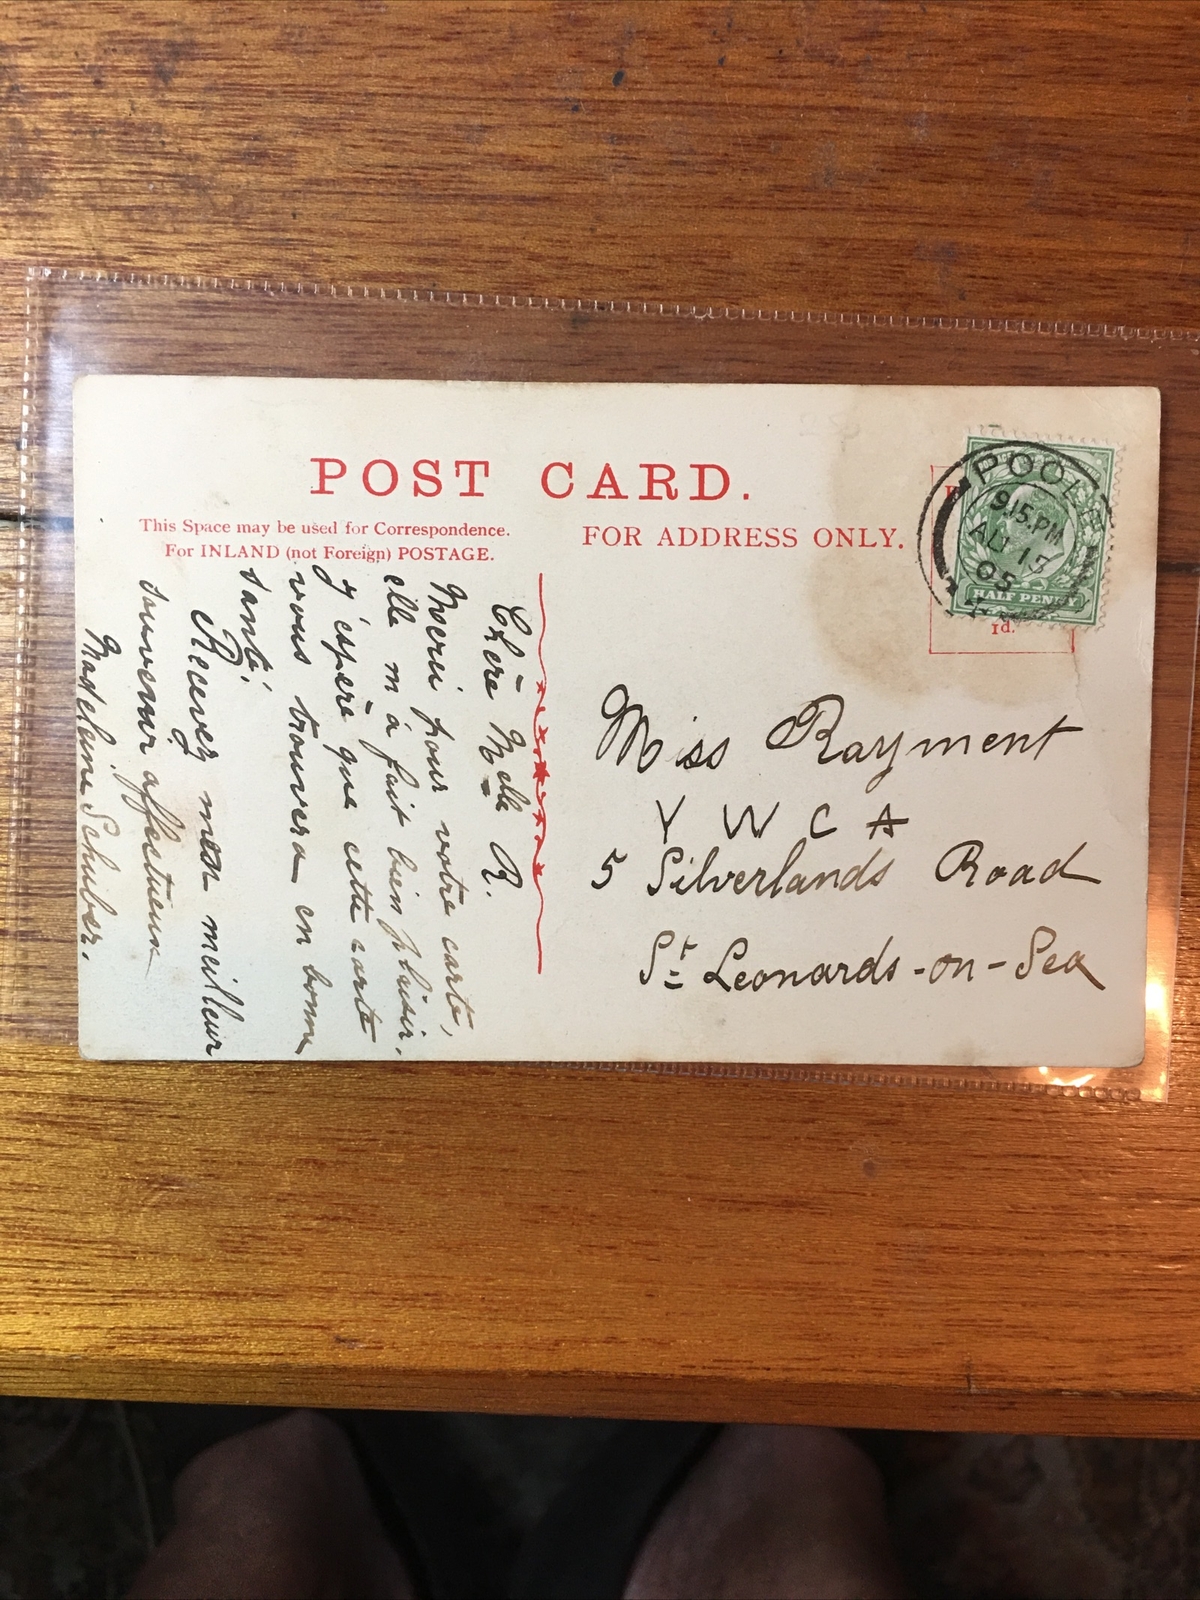 POST CARD.
This Space may be used for Correspondence.
For INLAND (not Foreign) POSTAGE.
FOR ADDRESS ONLY.
POOLE
9.15.PM
AU 13
05
HALF PENNY
1d.
Chère Melle R.
Merci pour votre carte,
elle m'a fait bien plaisir.
J'espère que cette carte
vous trouvera en bonne
santé.
Recevez mon meilleur
souvenir affectueux
Madeleine Schuber.
Miss Rayment
Y W C A
5 Silverlands Road
St Leonards-on-Sea